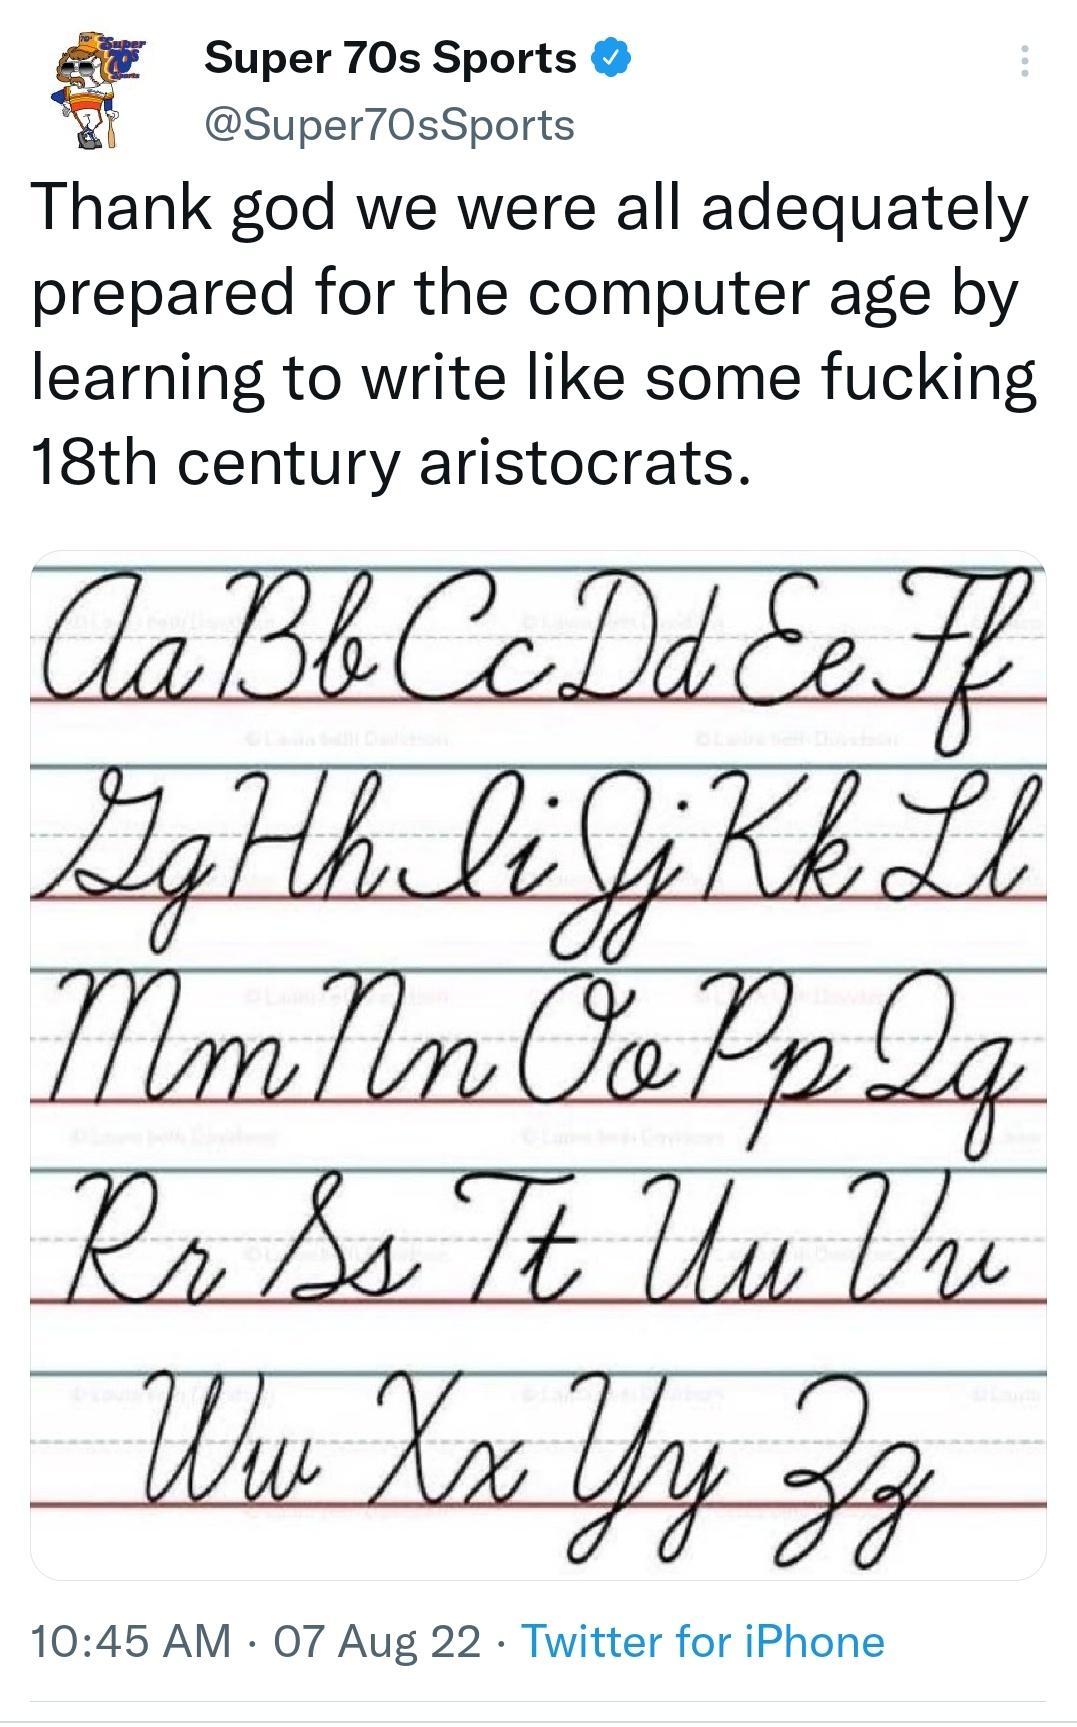 Super 70s Sports
@Super70sSports
Thank god we were all adequately
prepared for the computer age by
learning to write like some fucking
18th century aristocrats.
Aa Bb Cc Dd Ee Ff
Gg Hh Ii Jj Kk Ll
Mm Nn Oo Pp Qq
Rr Ss Tt Uu Vv
Ww Xx Yy Zz
10:45 AM · 07 Aug 22 · Twitter for iPhone